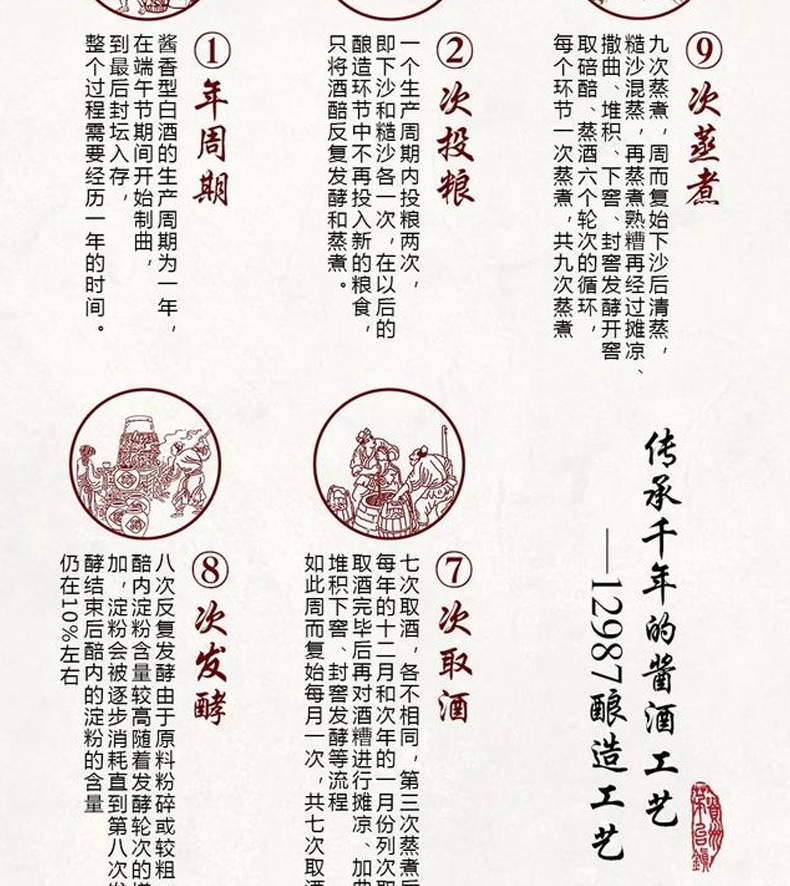 ①年周期
酱香型白酒的生产周期为一年，
在端午节期间开始制曲，
到最后封坛入存，
整个过程需要经历一年的时间。
②次投粮
一个生产周期内投粮两次，
即下沙和糙沙各一次，在以后的
酿造环节中不再投入新的粮食，
只将酒醅反复发酵和蒸煮。
⑨次蒸煮
九次蒸煮，周而复始下沙后清蒸，
糙沙混蒸，再蒸煮熟糟再经过摊凉、
撒曲、堆积、下窖、封窖发酵开窖
取碚醅、蒸酒六个轮次的循环，
每个环节一次蒸煮，共九次蒸煮
⑧次发酵
八次反复发酵由于原料粉碎或较粗
醅内淀粉含量较高随着发酵轮次的增
加，淀粉会被逐步消耗直到第八次发
酵结束后醅内的淀粉的含量
仍在10%左右
⑦次取酒
七次取酒，各不相同，第三次蒸煮后
每年的十二月和次年的一月份列次取
取酒完毕后再对酒糟进行摊凉、加曲
堆积下窖、封窖发酵等流程
如此周而复始每月一次，共七次取酒
传承千年的酱酒工艺
—12987酿造工艺
貴州
茅台鎮